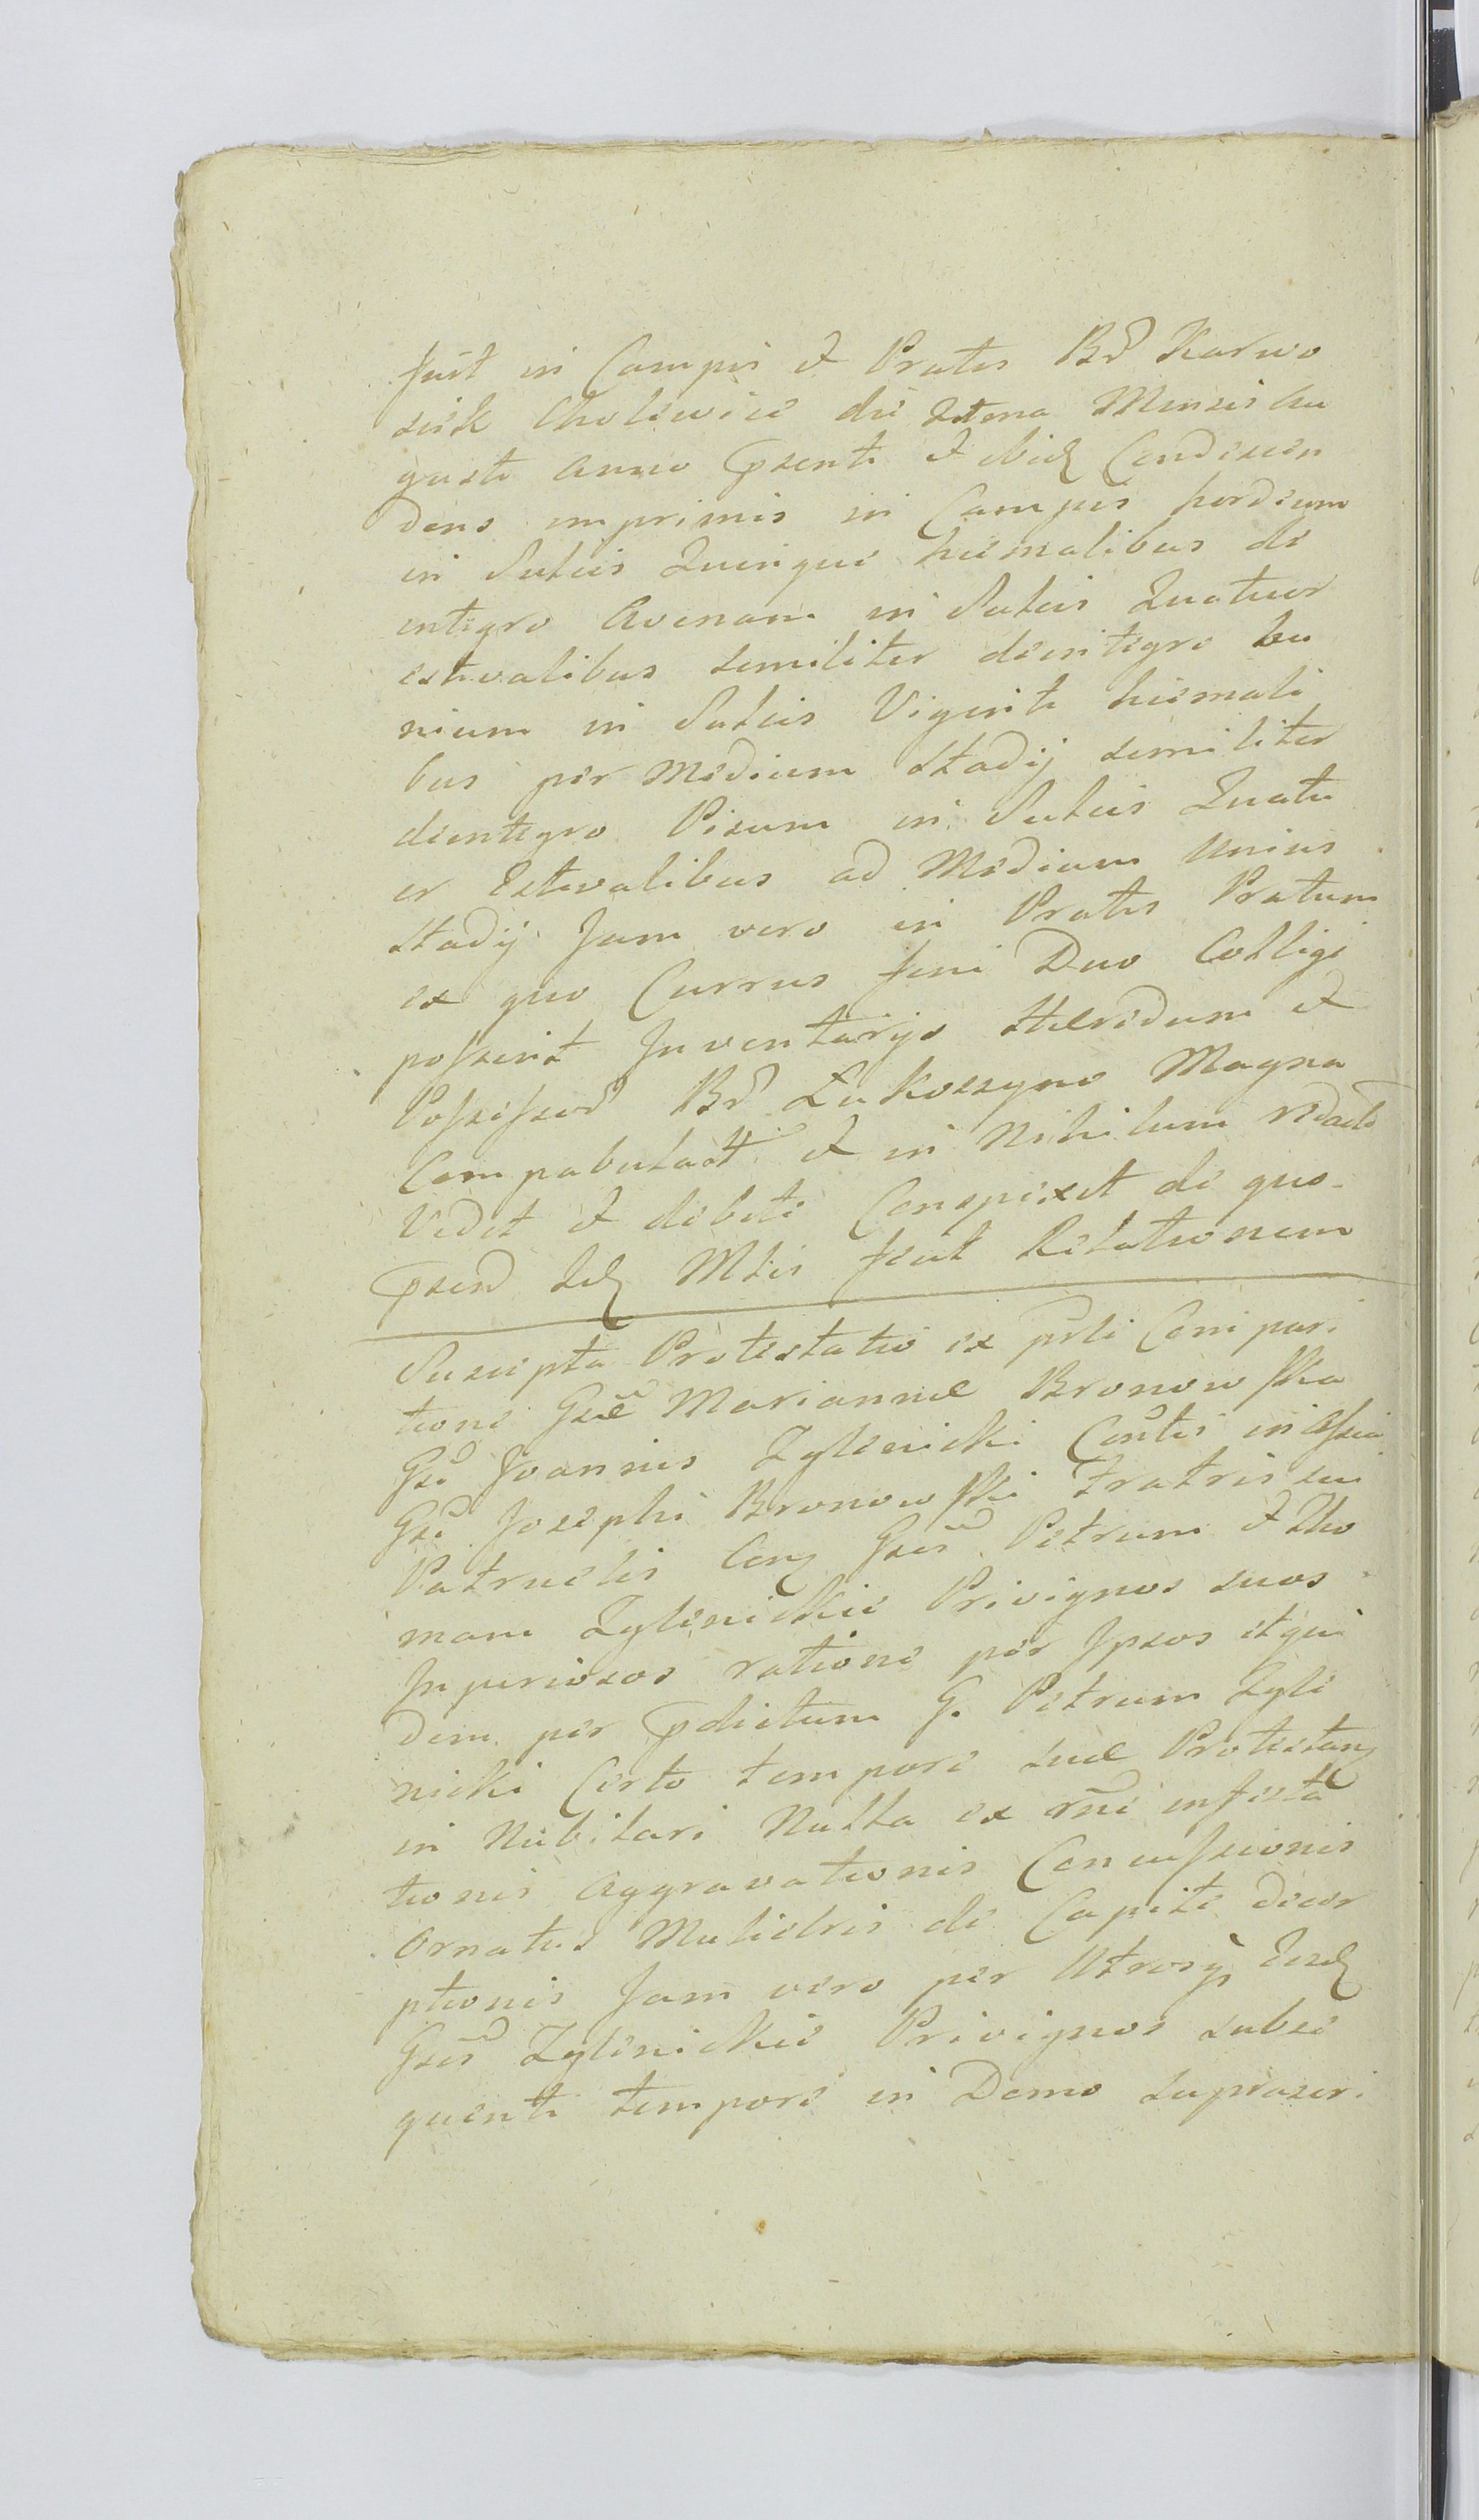 fuit in Campis et Pratis Bd Karwo
siek Cholewice die 2tma Mensis Au
gusti Anno psenti et ibidq Condescen
dens imprimis in Campis hordeum
in Sulcis Quinque hiemalibus de
integro Avenam in Sulcis Quatuor
estivalibus similiter deintegro Li
nium in Sulcis Viginti hiemali
bus per Medium Stadij similiter
deintegro Pisum in Sulcis Quatu
or Estivalibus ad Medium Unius
Stadij Jam vero in Pratis Pratum
ex quo Currus feni Duo Colligi
possent Inventarijs Heredum et
Possessod Bd Łukoszyno Magna
Compabulat et in Nihilum redact
Vidit et debite Conspexit de quo
psend Ldq Mlis fecit Relationem
Suscepta Protestatio ex psli Compari
tione Gsæ Mariannæ Bronowska
Gsi Joannis Zylinicki Contis in Assia
Gsi Josephi Bronowski Fratris sui
Patruelis Conq Gses Petrum et Tho
mam Zylinickie Privignos suos
Injuriosos ratione per Ipsos et qui
dem per pdictum G. Petrum Zyli
nicki Certo tempore suæ Protestanq
in Nubilari Nulla ex rne infesta
tionis Aggravationis Concussionis
Ornatus Muliebris de Capite decer
ptionis Jam vero per Utrosq Eosdq
Gses Zylinickie Privignos subse
quenti tempore in Domo suprascri